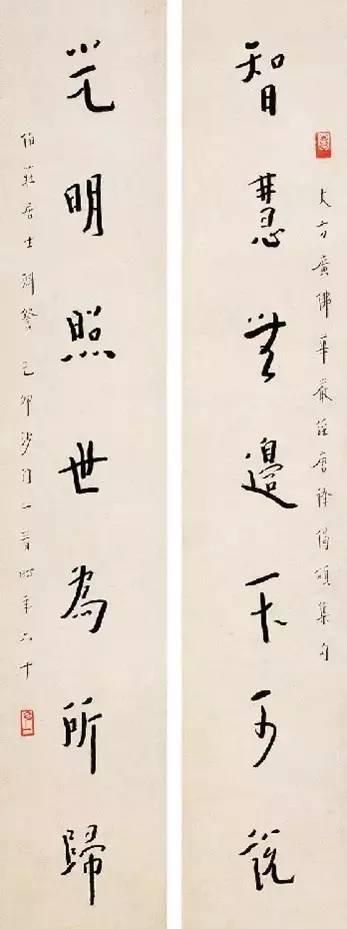 大方廣佛華嚴經唐譯偈頌集句
智慧無邊不可說
光明照世為所歸
伯莊居士 己卯沙門一音時年六十